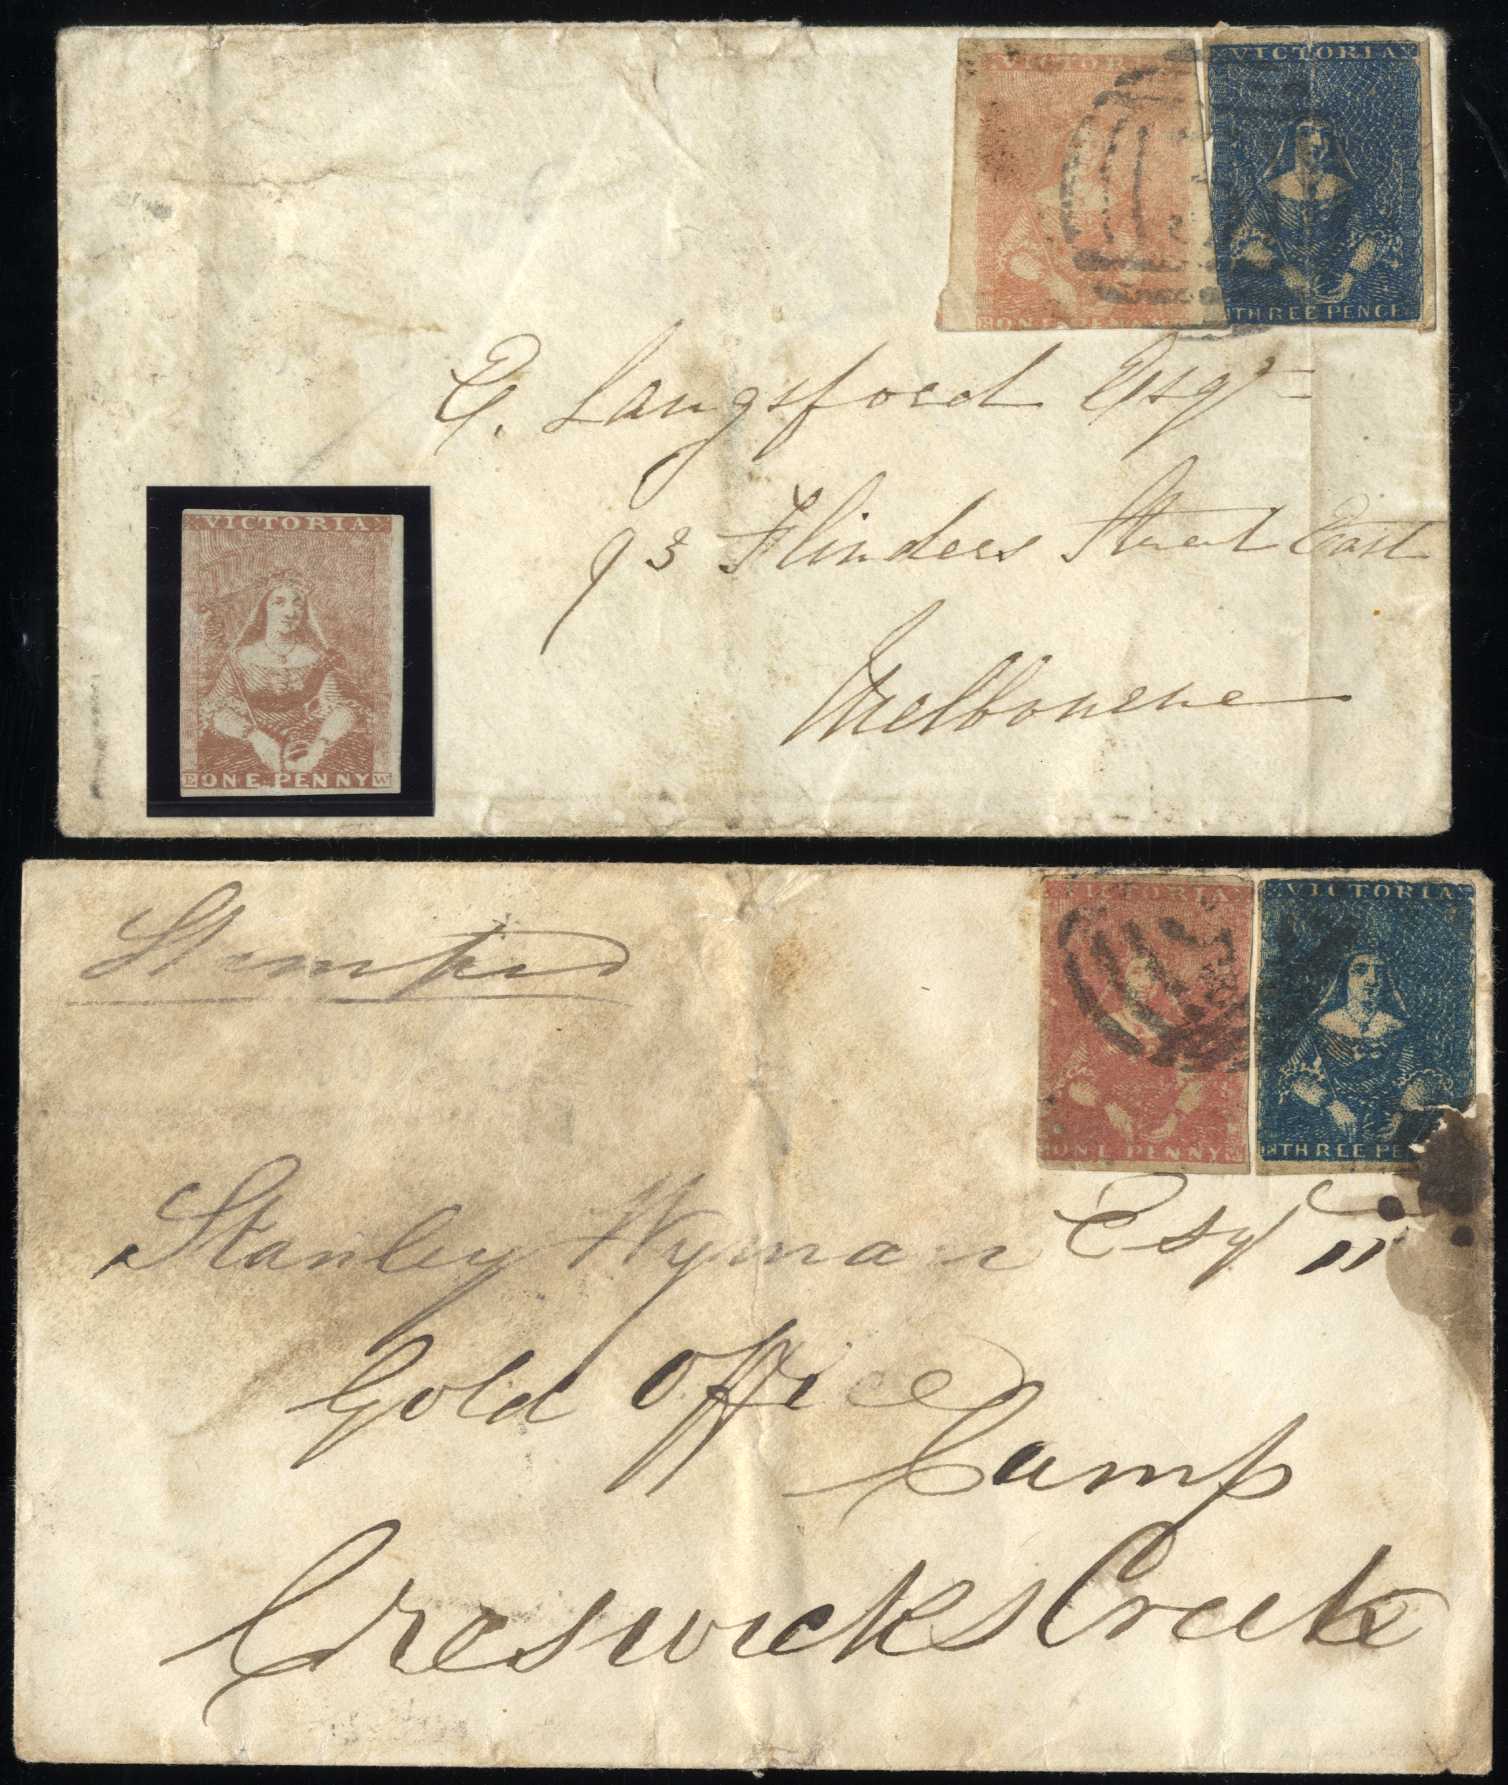 VICTORIA
ONE PENNY
VICTORIA
THREE PENCE
E. Langsford Esqr
93 Flinders Street East
Melbourne
VICTORIA
E ONE PENNY W
Stamped
VICTORIA
ONE PENNY W
VICTORIA
THREE PE
Stanley Wyman Esqr
Gold Office
Camp
Creswicks Creek